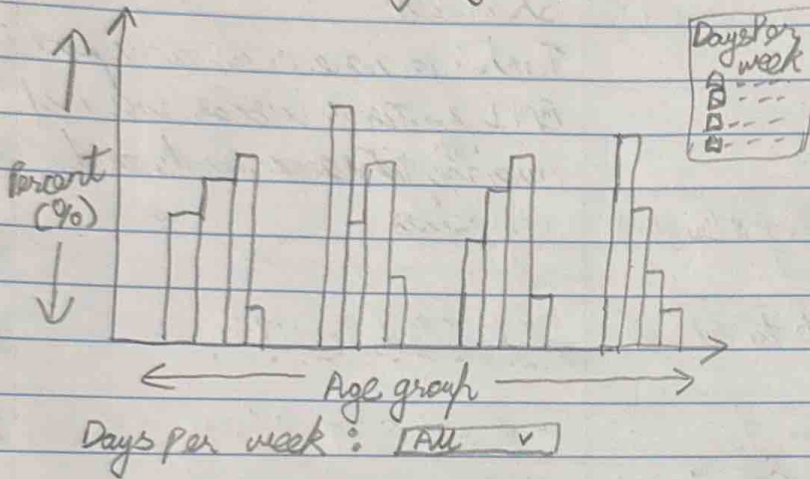 Days Per
week
Percent
(%)
Age group
Days Per week : All